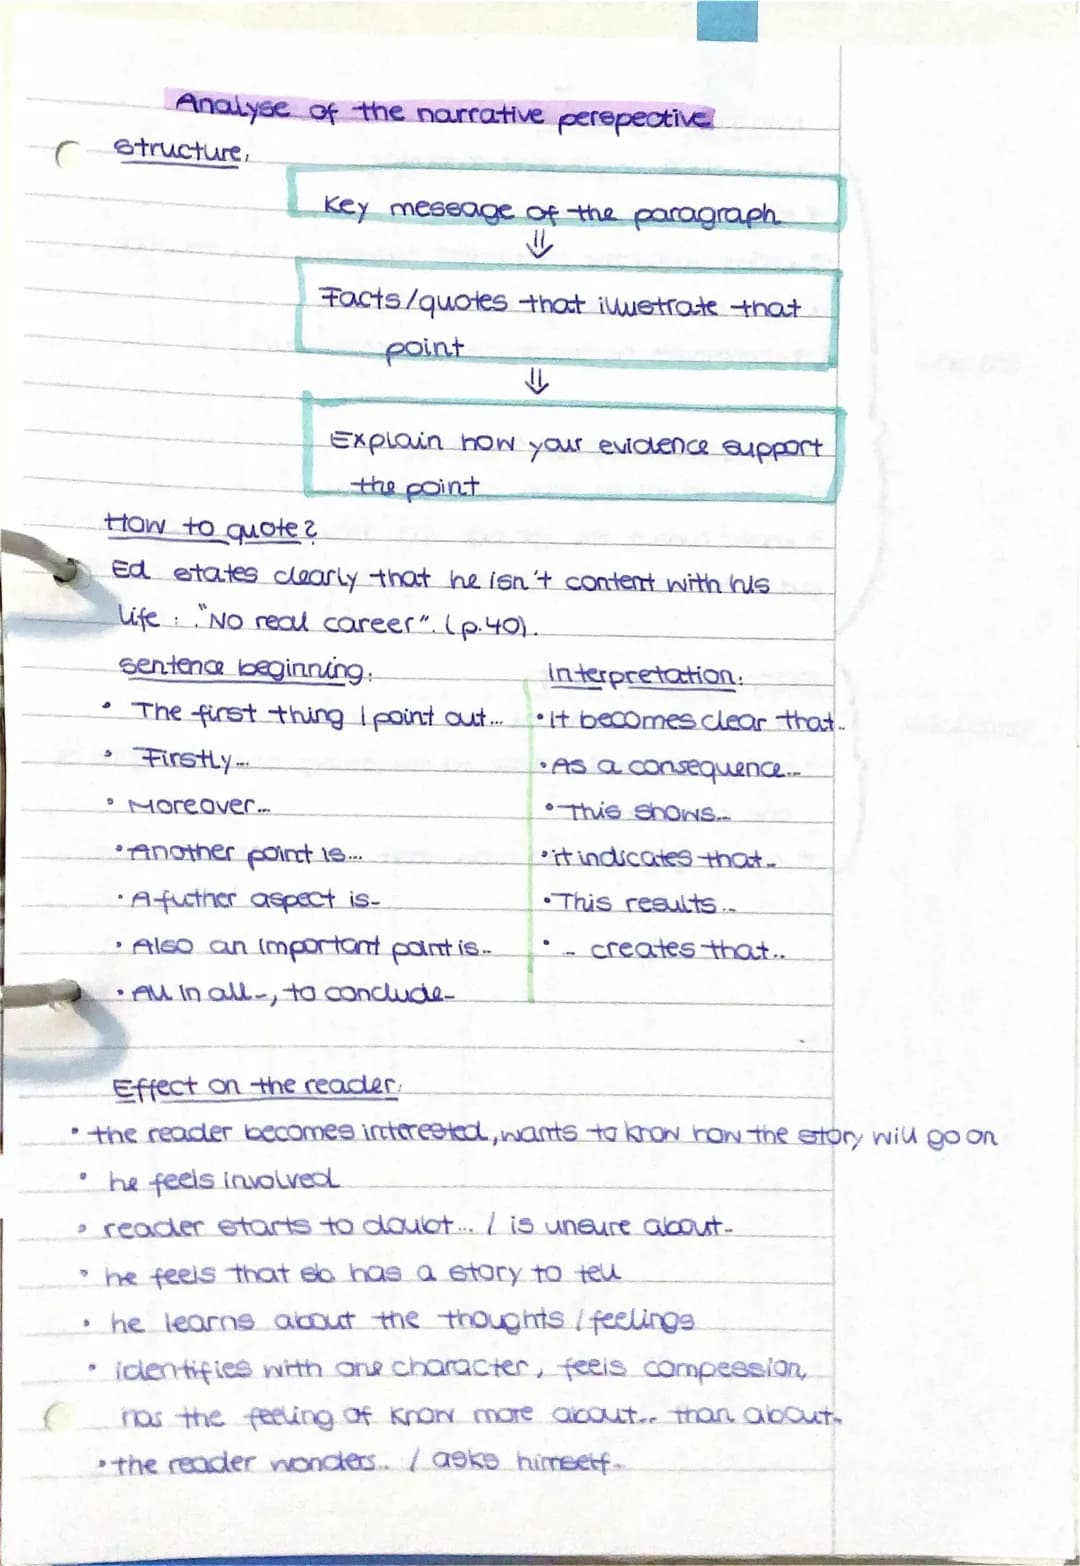 Analyse of the narrative perspective
structure:
Key message of the paragraph
⇓
Facts/quotes that illustrate that
point
⇓
Explain how your evidence support
the point
How to quote?
Ed states clearly that he isn't content with his
life : "No real career". (p.40).
sentence beginning:
• The first thing I point out...
• Firstly...
• Moreover...
• Another point is...
• A futher aspect is..
• Also an important point is..
• All in all.., to conclude..
Interpretation:
• it becomes clear that..
• As a consequence...
• This shows...
• it indicates that..
• This results...
• .. creates that..
Effect on the reader:
• the reader becomes interested, wants to know how the story will go on
• he feels involved
• reader starts to doubt... / is unsure about..
• he feels that sb. has a story to tell
• he learns about the thoughts / feelings
• identifies with one character, feels compession,
has the feeling of know more about... than about..
• the reader wonders... / asks himself..